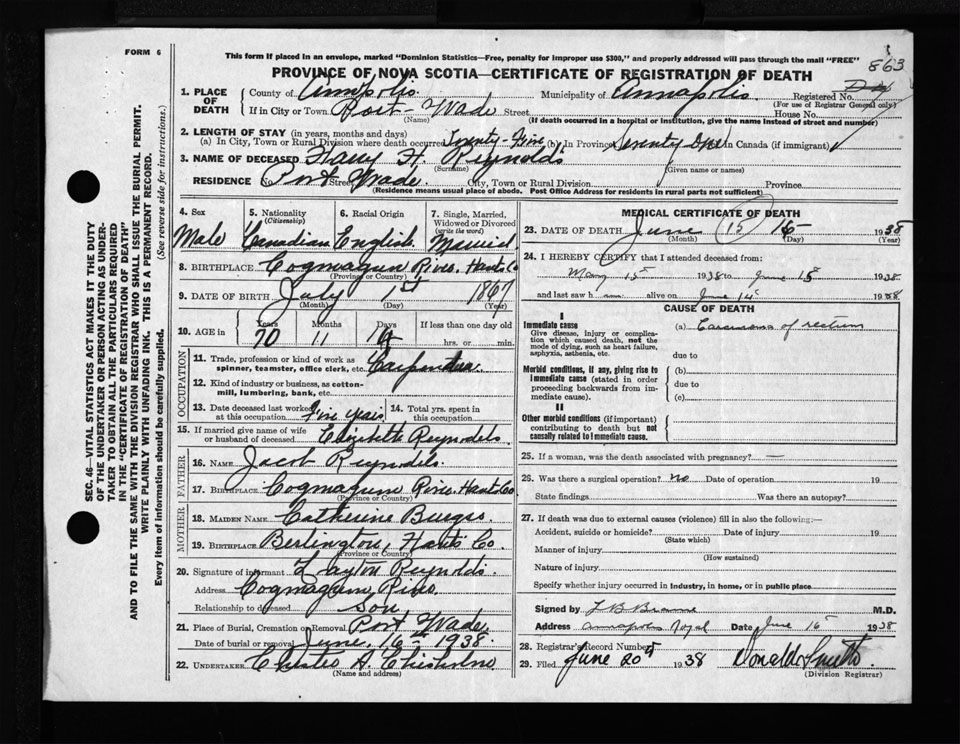 FORM 6
This form if placed in an envelope, marked "Dominion Statistics—Free, penalty for improper use $300," and properly addressed will pass through the mail "FREE"
863
PROVINCE OF NOVA SCOTIA—CERTIFICATE OF REGISTRATION OF DEATH
1. PLACE OF DEATH
County of Annapolis Municipality of Annapolis Registered No.
(For use of Registrar General only)
If in City or Town Port Wade Street House No.
(Name) (If death occurred in a hospital or institution, give the name instead of street and number)
2. LENGTH OF STAY (in years, months and days)
(a) In City, Town or Rural Division where death occurred Twenty-Five (b) In Province Seventy One In Canada (if immigrant)
3. NAME OF DECEASED Harry H. Reynolds
(Surname) (Given name or names)
RESIDENCE No. Port Wade Street City, Town or Rural Division Province
(Residence means usual place of abode. Post Office Address for residents in rural parts not sufficient)
4. Sex
Male
5. Nationality (Citizenship)
Canadian
6. Racial Origin
English
7. Single, Married, Widowed or Divorced (write the word)
Married
8. BIRTHPLACE Cogmagun River Hants Co
(Province or Country)
9. DATE OF BIRTH July 1st 1867
(Month) (Day) (Year)
10. AGE in Years Months Days If less than one day old
70 11 14 hrs. or min.
OCCUPATION
11. Trade, profession or kind of work as spinner, teamster, office clerk, etc. Carpenter
12. Kind of industry or business, as cotton-mill, lumbering, bank, etc.
13. Date deceased last worked at this occupation Five Years
14. Total yrs. spent in this occupation
15. If married give name of wife or husband of deceased Elizabeth Reynolds
FATHER
16. NAME Jacob Reynolds
17. BIRTHPLACE Cogmagun River Hants Co
(Province or Country)
MOTHER
18. MAIDEN NAME Catherine Burges
19. BIRTHPLACE Berlington, Hants Co.
(Province or Country)
20. Signature of informant Layton Reynolds
Address Cogmagun River
Relationship to deceased Son
21. Place of Burial, Cremation or Removal Port Wade
Date of burial or removal June 16th 1938
22. UNDERTAKER Chisholm
(Name and address)
MEDICAL CERTIFICATE OF DEATH
23. DATE OF DEATH June 15 1938
(Month) (Day) (Year)
24. I HEREBY CERTIFY that I attended deceased from:
May 15 1938 to June 15 1938
and last saw h im alive on June 14 1938
CAUSE OF DEATH
I
Immediate cause
Give disease, injury or complication which caused death, not the mode of dying, such as heart failure, asphyxia, asthenia, etc.
(a) Carcinoma of rectum
due to
Morbid conditions, if any, giving rise to immediate cause (stated in order proceeding backwards from immediate cause).
(b)
due to
(c)
II
Other morbid conditions (if important) contributing to death but not causally related to immediate cause.
25. If a woman, was the death associated with pregnancy? —
26. Was there a surgical operation? no Date of operation 19
State findings Was there an autopsy?
27. If death was due to external causes (violence) fill in also the following:—
Accident, suicide or homicide? Date of injury 19
(State which)
Manner of injury
(How sustained)
Nature of injury
Specify whether injury occurred in industry, in home, or in public place
Signed by M.D.
Address Annapolis Royal Date June 16 1938
28. Registrar's Record Number
29. Filed June 20th 1938 Donald Smith
(Division Registrar)
SEC. 46—VITAL STATISTICS ACT MAKES IT THE DUTY
OF THE UNDERTAKER OR PERSON ACTING AS UNDER-
TAKER TO OBTAIN ALL THE PARTICULARS REQUIRED
IN THE "CERTIFICATE OF REGISTRATION OF DEATH"
AND TO FILE THE SAME WITH THE DIVISION REGISTRAR WHO SHALL ISSUE THE BURIAL PERMIT.
WRITE PLAINLY WITH UNFADING INK. THIS IS A PERMANENT RECORD.
Every item of information should be carefully supplied. (See reverse side for instructions.)